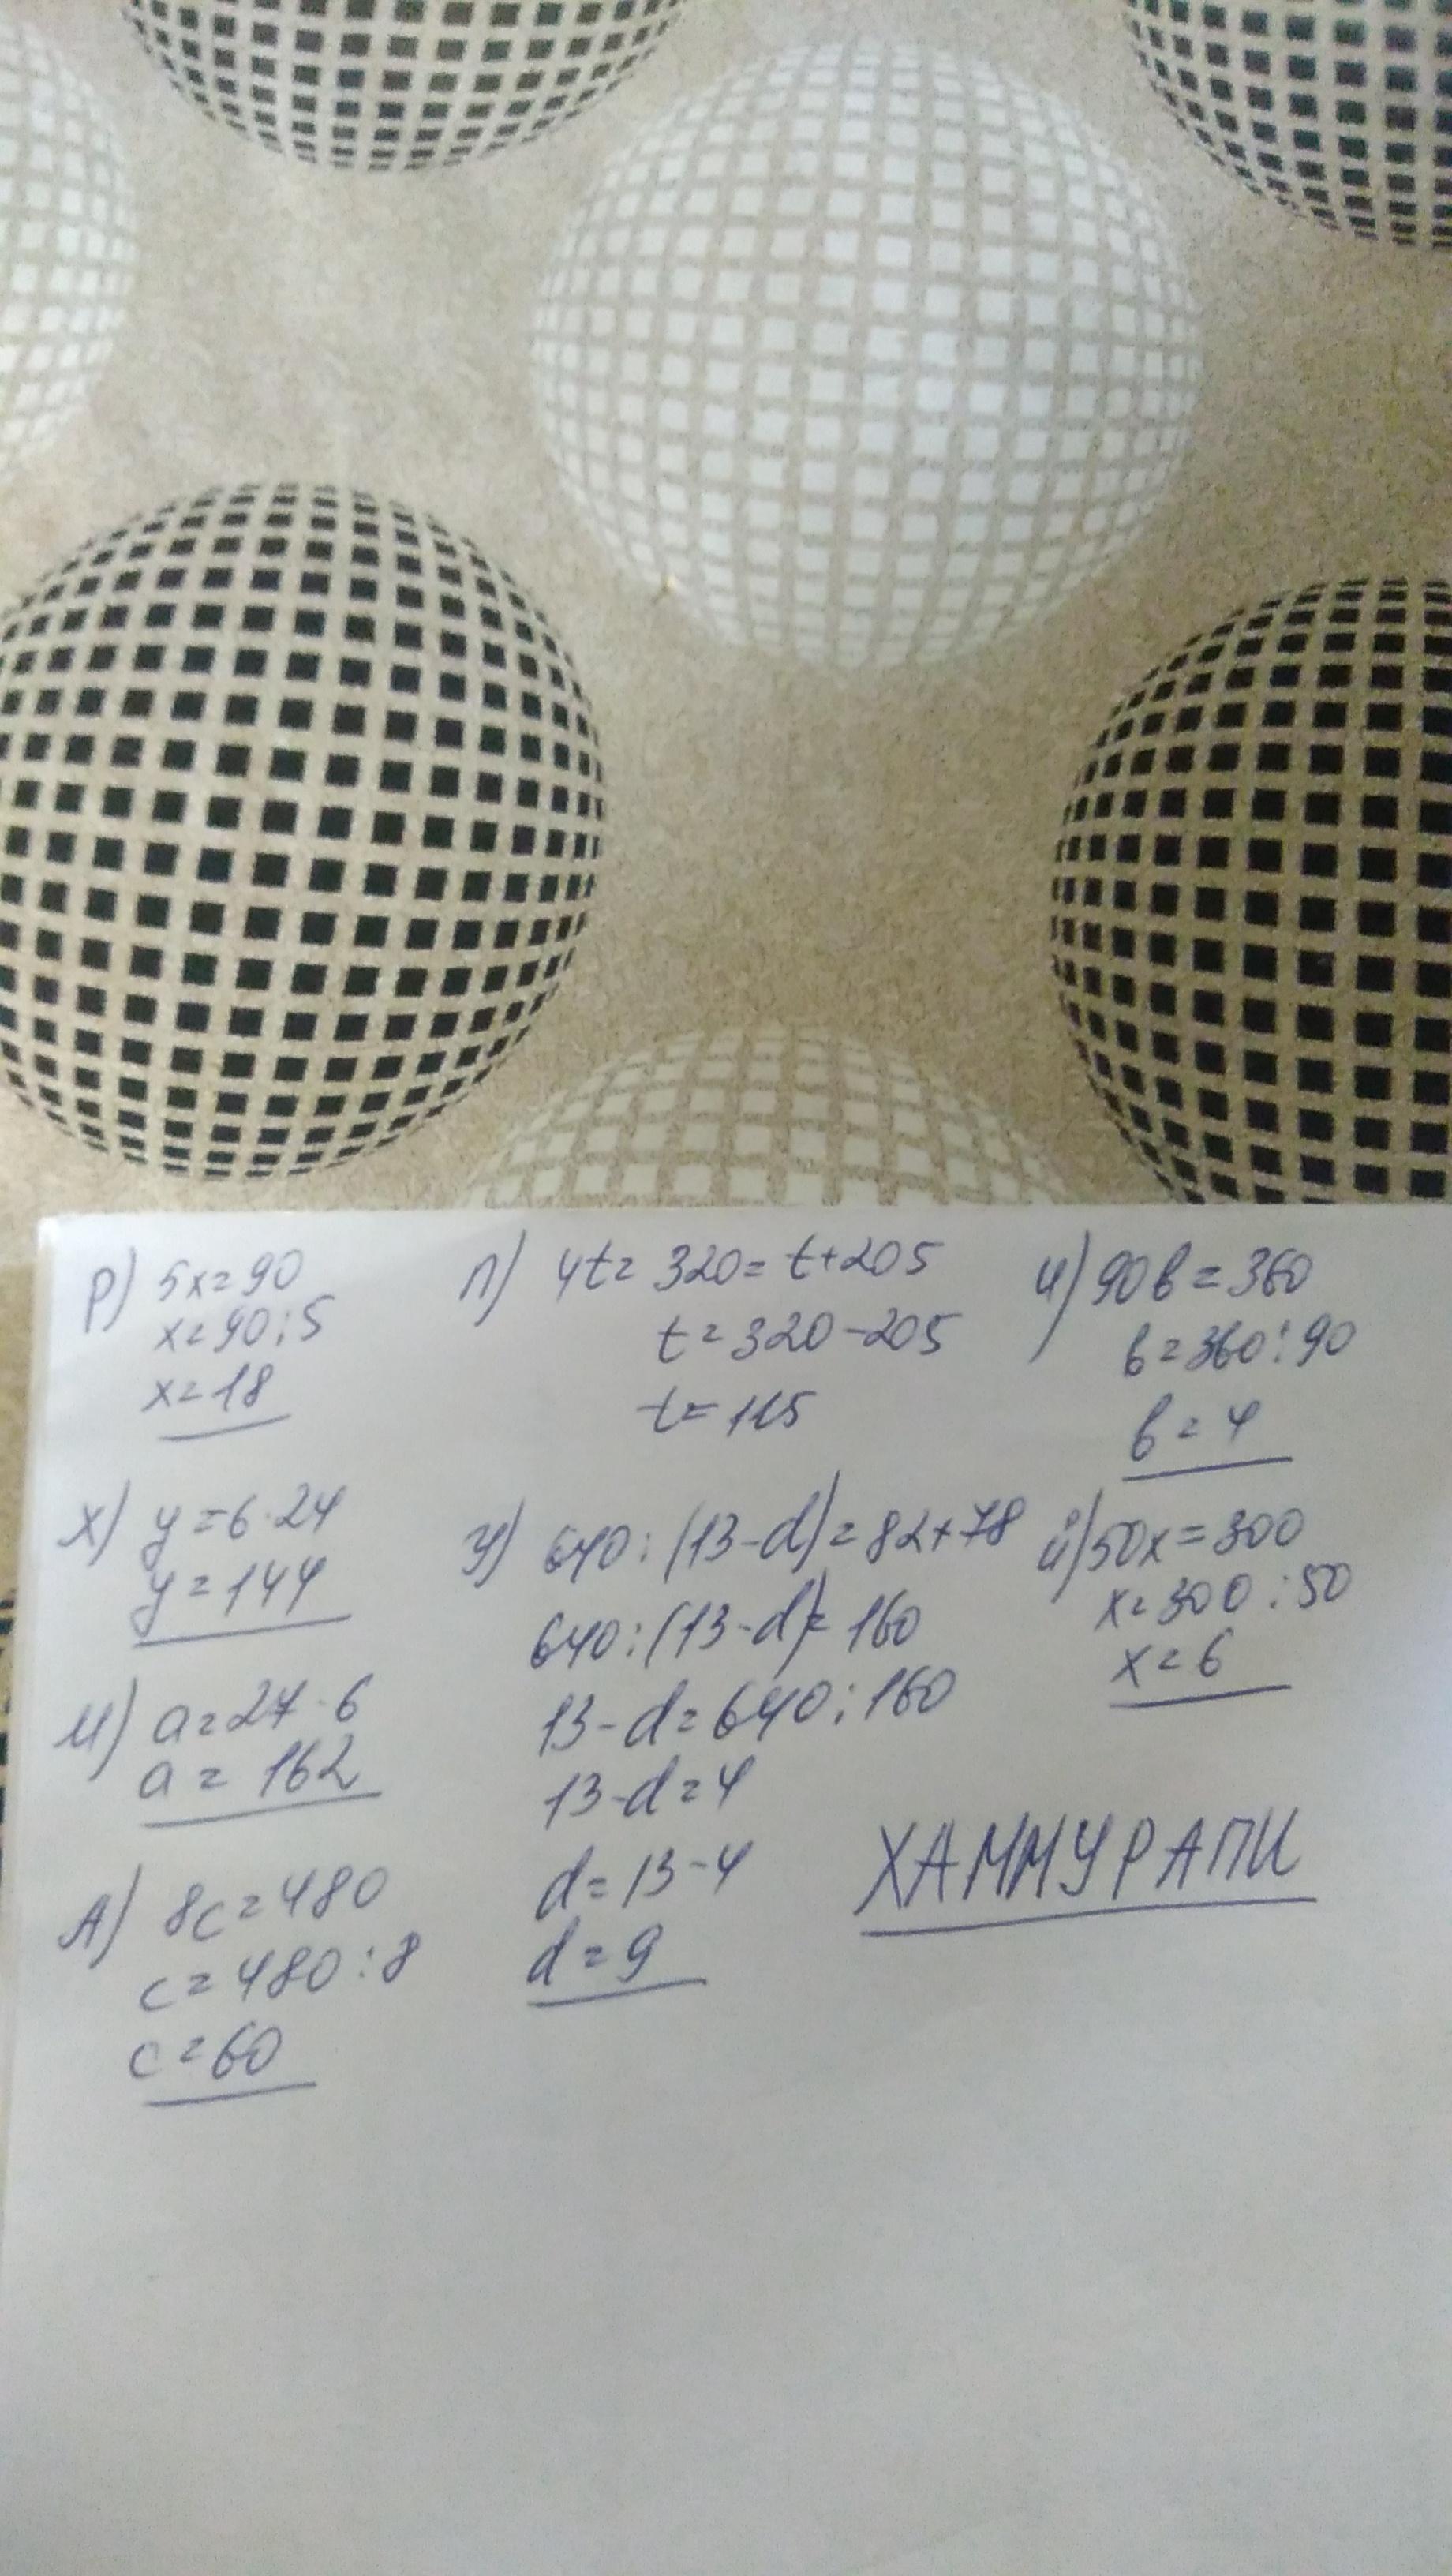 Р) 5x=90
x=90:5
x=18
Х) y=6·24
y=144
М) a=27·6
a=162
А) 8c=480
c=480:8
c=60
П) 4t= 320= t+205
t=320-205
t=115
У) 640:(13-d)=82+78
640:(13-d)=160
13-d=640:160
13-d=4
d=13-4
d=9
И) 90b=360
b=360:90
b=4
Й) 50x=300
x=300:50
x=6
ХАММУРАПИ